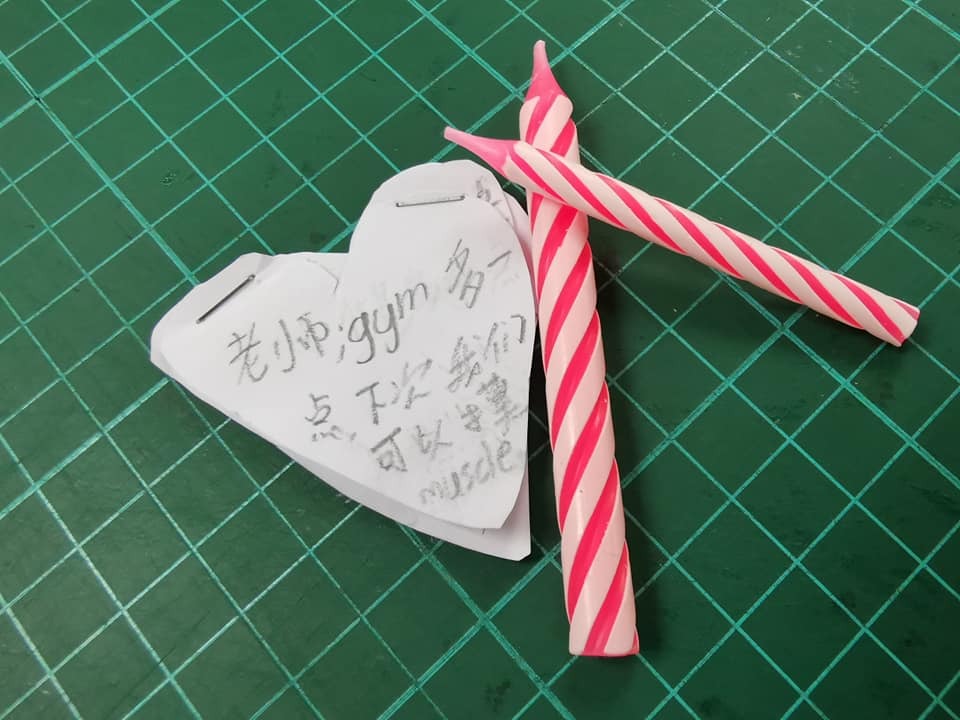 老师,gym 多一
点 下次 我们
可以 分享
muscle